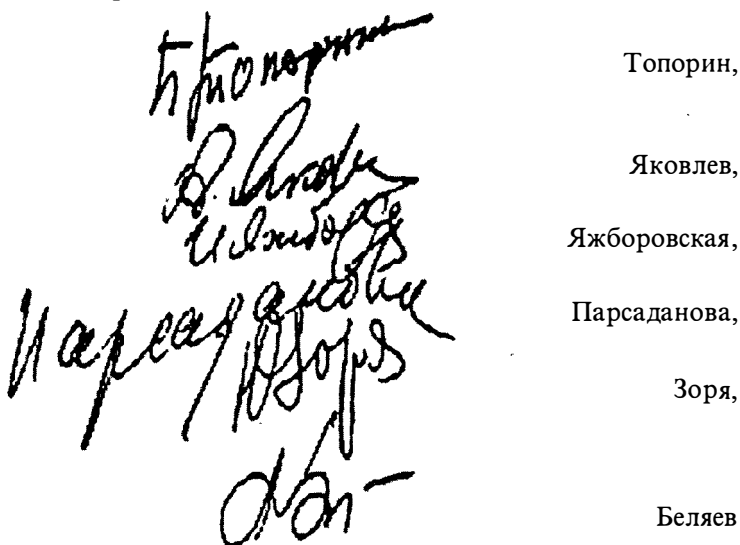 Б Топорнин Топорин,
В. Яковл Яковлев,
И Яжборов Яжборовская,
Парсаданова Парсаданова,
Ю Зоря Зоря,
Беляев